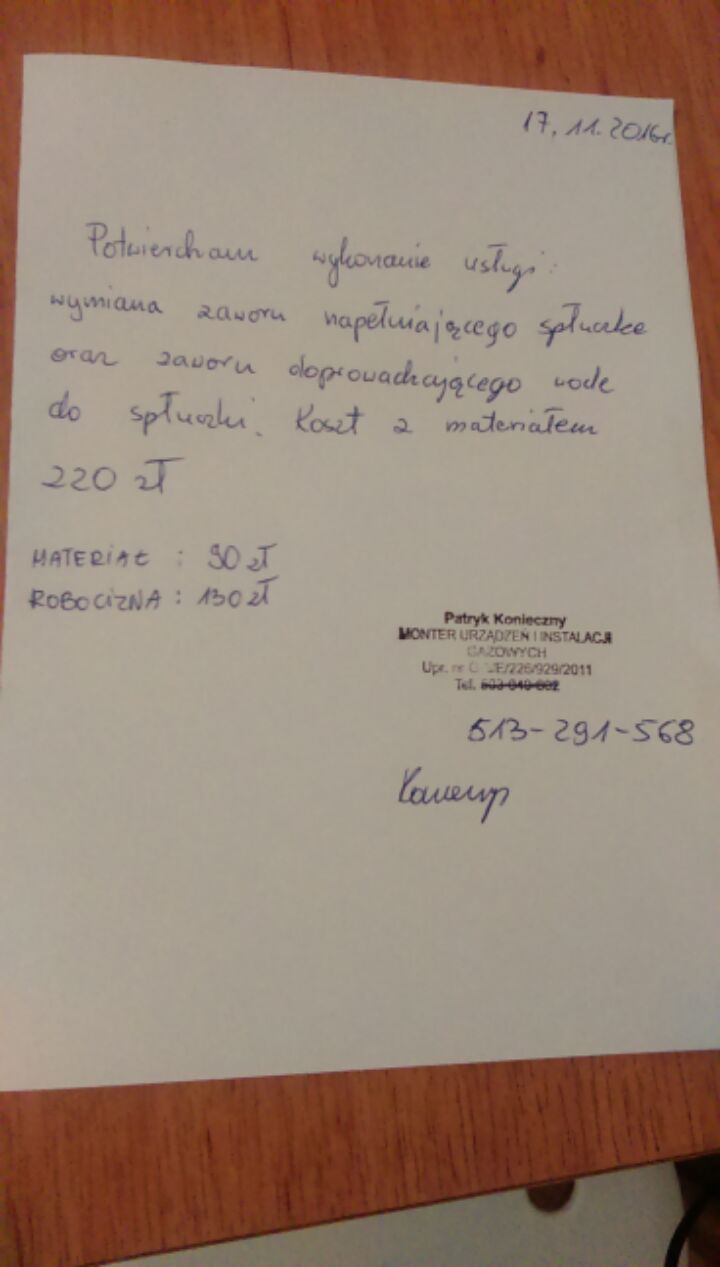 17.11.2016r.
Potwierdzam wykonanie usługi:
wymiana zaworu napełniającego spłuczkę
oraz zaworu doprowadzającego wodę
do spłuczki. Koszt z materiałem
220 zł
MATERIAŁ : 90 zł
ROBOCIZNA : 130 zł
Patryk Konieczny
MONTER URZĄDZEŃ I INSTALACJI
GAZOWYCH
Upr. nr /226/929/2011
Tel.
513-291-568